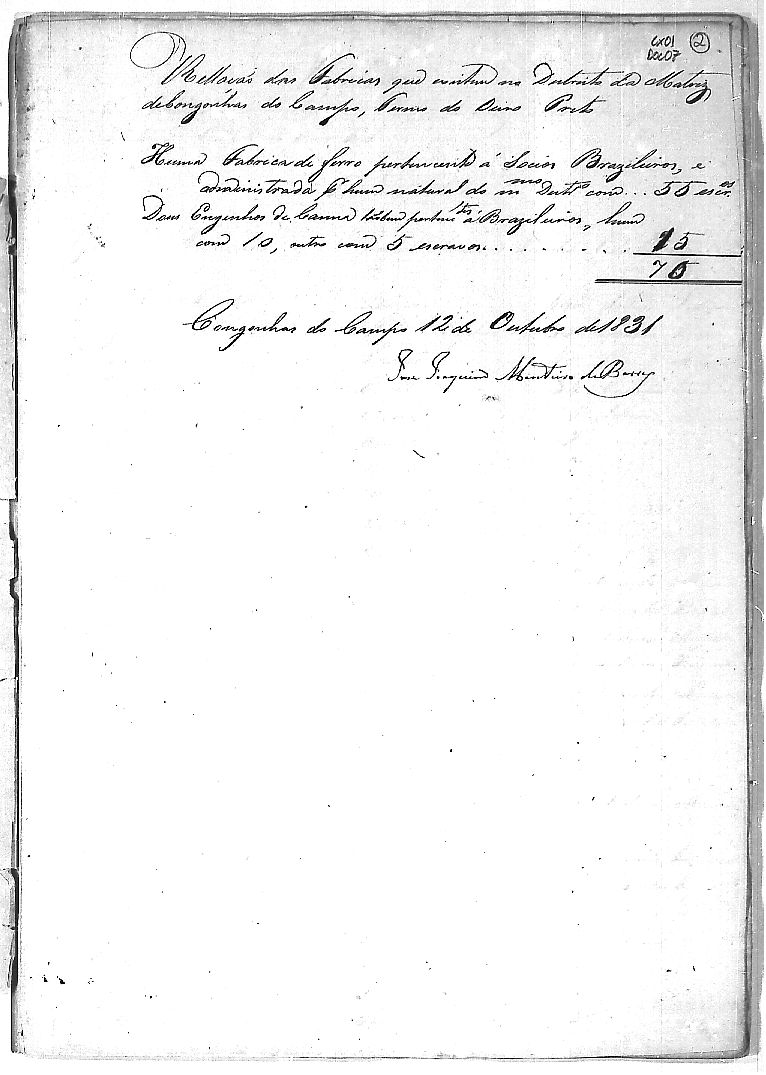 CX01 2
DOC07
Rellação das Fabricas que existem no Destrito da Matriz
de Congonhas do Campo, Termo do Oiro Preto
Huma Fabrica de ferro pertencente á Socios Brazileiros, e
administrada p hum natural do mmo Destro com .. 55 escros
Dous Engenhos de Canna tãobem pertenctes á Brazileiros, hum
com 10, outro com 5 escravos . . . . . . . . 15
70
Congonhas do Campo 12 de Outubro de 1831
Jose Joaquim Monteiro de Barros